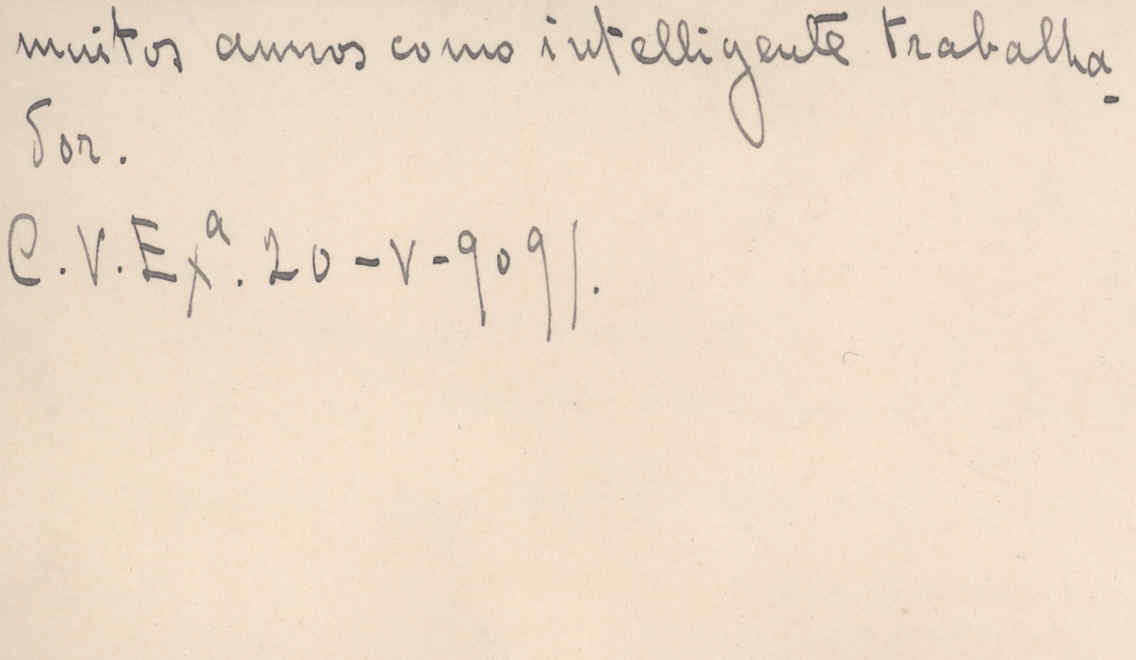 muitos annos como intelligente trabalha-
dor.
C. V. Exª. 20-V-909/.